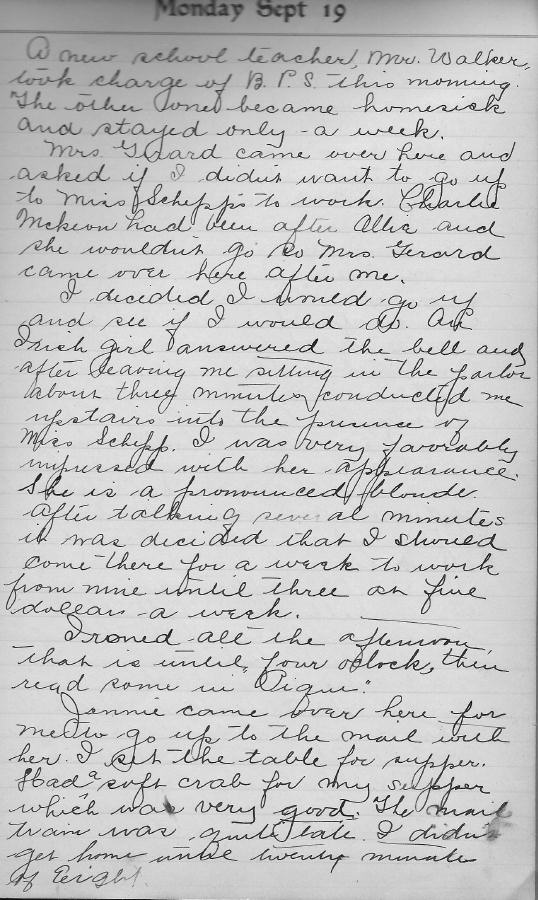 Monday Sept 19
A new school teacher, Mr. Walker,
took charge of B. P. S. this morning.
The other one became homesick
and stayed only a week.
Mrs. Gerard came over here and
asked if I didn't want to go up
to Miss Schepp's to work. Charlie
McKeon had been after Allie and
she wouldn't go so Mrs. Gerard
came over here after me.
I decided I would go up
and see if I would do. An
Irish girl answered the bell and
after leaving me sitting in the parlor
about three minutes conducted me
upstairs into the presence of
Miss Schepp. I was very favorably
impressed with her appearance.
She is a pronounced blonde.
After talking several minutes
it was decided that I should
come there for a week to work
from nine until three at five
dollars a week.
Ironed all the afternoon,
that is until four o'clock, then
read some in
Jennie came over here for
me to go up to the mail with
her. I set the table for supper.
Had a soft crab for my supper
which was very good. The mail
train was quite late. I didn't
get home until twenty minutes
of eight.